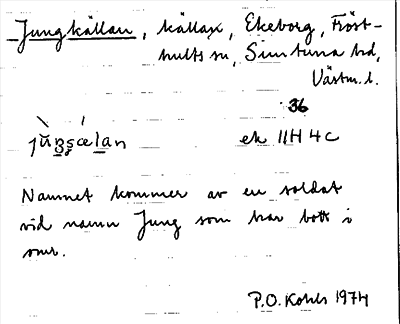 Jungkällan, källa, Ekeborg, Fröst-
hults sn, Simtuna hd,
Västm. l.
36
ek 11H 4c
Namnet kommer av en soldat
vid namn Jung som har bott i
P.O. Kohls 1974